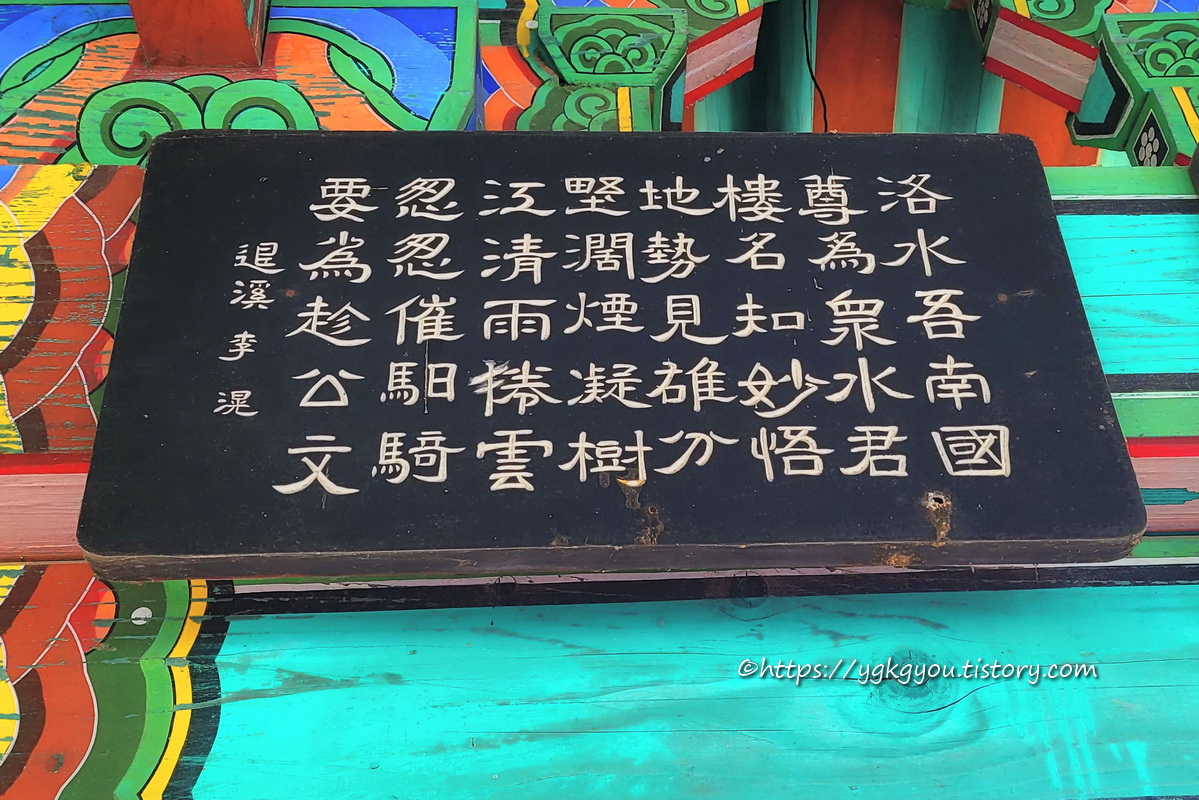 洛水吾南國
尊為衆水君
樓名知妙悟
地勢見雄分
墅濶煙凝樹
江清雨捲雲
怱怱催馹騎
要為趁公文
退溪 李滉
©https://ygkgyou.tistory.com